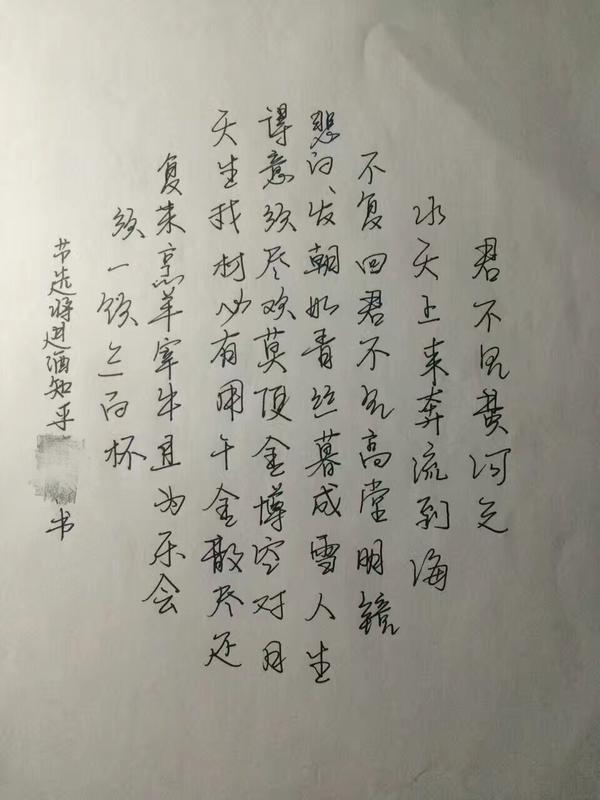 君不见黄河之
水天上来奔流到海
不复回君不见高堂明镜
悲白发朝如青丝暮成雪人生
得意须尽欢莫使金樽空对月
天生我材必有用千金散尽还
复来烹羊宰牛且为乐会
须一饮三百杯
节选将进酒知乎 书